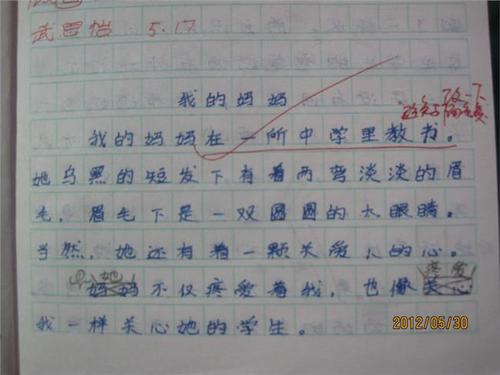 武思怡 5.17
我的妈妈
改一下
我的妈妈在一所中学里教书。
她乌黑的短发下有着两弯淡淡的眉
毛，眉毛下是一双圆圆的大眼睛。
当然，她还有着一颗关爱人的心。
她
疼爱
妈妈不仅疼爱着我，也像关心
我一样关心她的学生。
2012/05/30